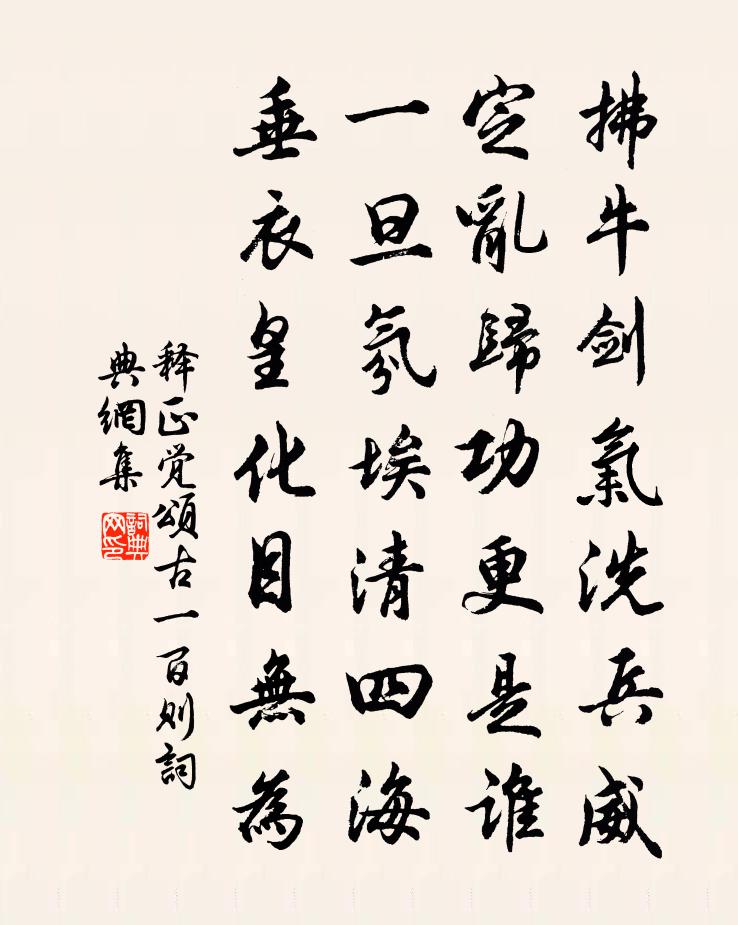 拂牛劍氣洗兵威
定亂歸功更是誰
一旦氛埃清四海
垂衣皇化自無為
释正觉頌古一百则詞
典網集
詞典網印